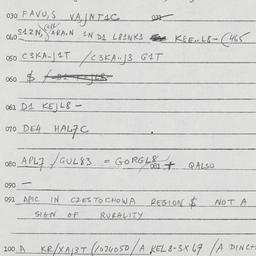 030 FAVU,S VAJNT1C
040 S1ZN, ARA.N 1N D1 L8INKS K8E..L8-(465
050 C3KA.J1T /C3KA..J3 G1T
060 $
061 D1 KEJL8-
070 DE4 HAL7C
080 APL7 /GUL83 = GORGL8/ 081 + QALSO
090 -
091 APIC IN CZESTOCHOWA REGION $ NOT A
SIGN OF RURALITY
100 A KR/XAJ3T (/024050/A KEL8-SX67 /A DINCH